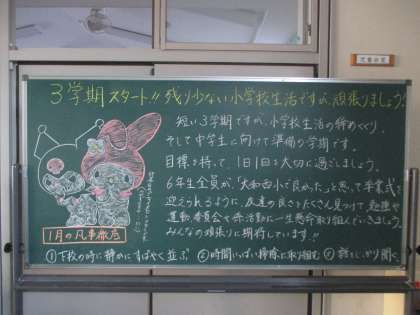 3学期スタート!!残り少ない小学校生活ですが、頑張りましょう!
短い3学期ですが、小学校生活の締めくくり、
そして中学生に向けて準備の学期です。
目標を持って、1日1日を大切に過ごしましょう。
6年生全員が、「大和西小で良かった」と思って卒業式を
迎えられるように、友達の良さをたくさん見つけて、勉強や
運動、委員会や係活動に一生懸命取り組んでいきましょう。
みんなの頑張りに期待しています!!
1月の凡事徹底
①下校の時に静かにすばやく並ぶ ②時間いっぱい掃除に取り組む ③話をしっかり聞く